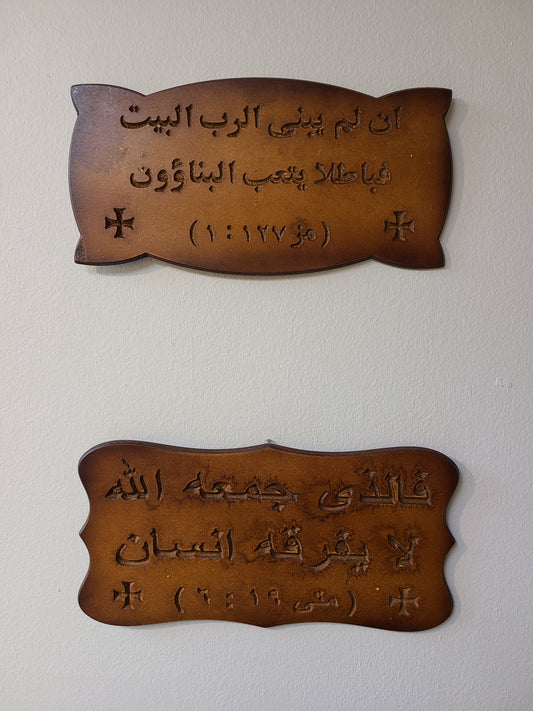 ان لم يبني الرب البيت
فباطلا يتعب البناؤون
(مز ١٢٧ : ١)
فالذى جمعه الله
لا يفرقه انسان
(متى ١٩ : ٦)